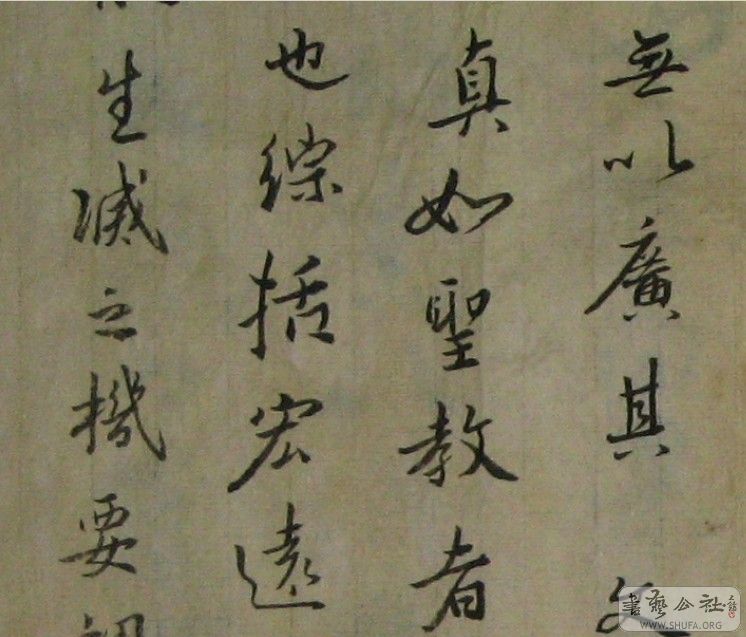 無以廣其文
真如聖教者
也綜括宏遠
生滅之機要詞
書藝公社
WWW.SHUFA.ORG